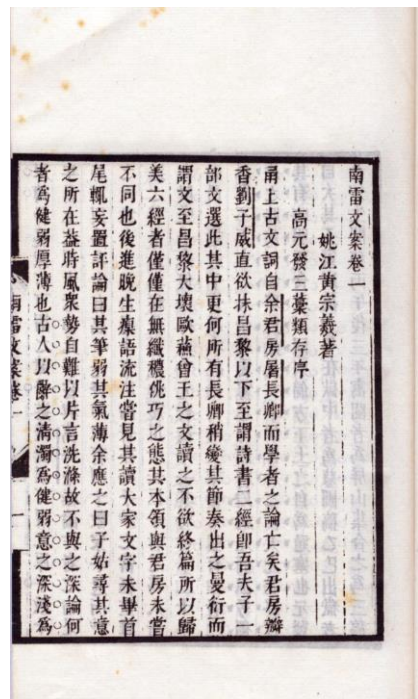 南雷文案卷一
姚江黃宗羲著
高元發三藁類存序
甬上古文詞自余君房屠長卿而學者之論亡矣君房瓣
香劉子威直欲抹昌黎以下至謂詩書二經卽吾夫子一
部文選此其中更何所有長卿稍變其節奏出之曼衍而
謂文至昌黎大壞歐蘇曾王之文讀之不欲終篇所以歸
美六經者僅僅在無纖穠佻巧之態其本領與君房未嘗
不同也後進晚生瘝語流注嘗見其讀大家文字未畢首
尾輒妄置評論曰其筆弱其氣薄余應之曰子姑尋其意
之所在葢時風衆勢自難以片言洗滌故不與之深論何
者爲健弱厚薄也古人以辭之淸濁爲健弱意之深淺爲
南雷文案卷一
一